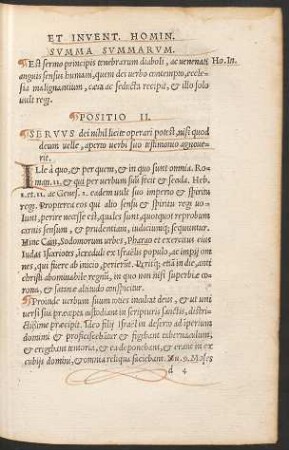 ET INVENT. HOMIN.
SVMMA SVMMARVM.
¶Est sermo principis tenebrarum diaboli, ac uenenatꝰ Ho. In.
anguis sensus humani, quem dei uerbo contempto, eccle
sia malignantium, cæca ac seducta recipit, & illo solo
uult regi.
¶POSITIO II.
SERVVS dei nihil licite operari potest, nisi quod
deum uelle, aperto uerbi sui testimonio agnoue-
rit.
ILle à quo, & per quem, & in quo sunt omnia. Ro-
man. 11. & qui per uerbum sui fecit & secula. Heb.
1. et. 11. ac Genes. 1. eadem uult suo imperio & spiritu
regi. Propterea eos qui alio sensu & spiritu regi uo-
lunt, perire necesse est, quales sunt, quotquot reproburn
sensum cæcorum, & prudentiam, iudiciumq; sequuntur.
Hinc Cain, Sodomorum urbes, Pharao et exercitus eius
Iudas Iscariotes, incredul' ex Israëlis populo, ac impij om-
nes, qui fuere ab initio, perierũt. Peritq; etiā in die, anti
christi abominabile regnū, in quo non nisi superbiæ co-
rona, & satanæ altitudo conspicitur.
¶Proinde uerbum suum toties inculcat deus, & ut uni
uersi sua præcepta custodiant in scripturis sanctis, distri-
ctissime præcipit. Ideo filij Israël in deserto ad iperium
domini & proficiscebātur & figebant tabernaculum,
& erigebant tentoria, & ea deponebant, & erant in ex
cubijs domini, & omnia reliqua faciebant. Nu. 9. Moses
d 4